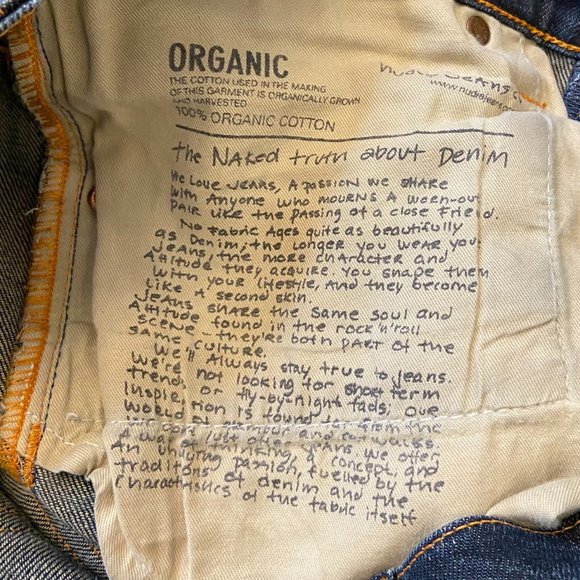 ORGANIC
THE COTTON USED IN THE MAKING
OF THIS GARMENT IS ORGANICALLY GROWN
AND HARVESTED
100% ORGANIC COTTON
nudie Jeans co
www.nudiejeans.com
the NAKED truth about Denim
We Love Jeans, A passion we share
with Anyone who mourns a worn-out
pair like the passing of a close friend.
No fabric Ages quite as beautifully
as Denim, the longer you wear your
Jeans, the more character and
Attitude they acquire. You shape them
with your lifestyle, and they become
like a second skin.
Jeans share the same soul and
Attitude found in the rock'n'roll
scene - they're both part of the
same culture.
We'll Always stay true to Jeans.
We're not looking for short term
trends or fly-by-night fads; our
inspiration is found far from the
world of glamour and catwalks
just offer jeans, we offer
a way of thinking, a concept, and
An undying passion, fuelled by the
traditions of denim and the
characteristics of the fabric itself